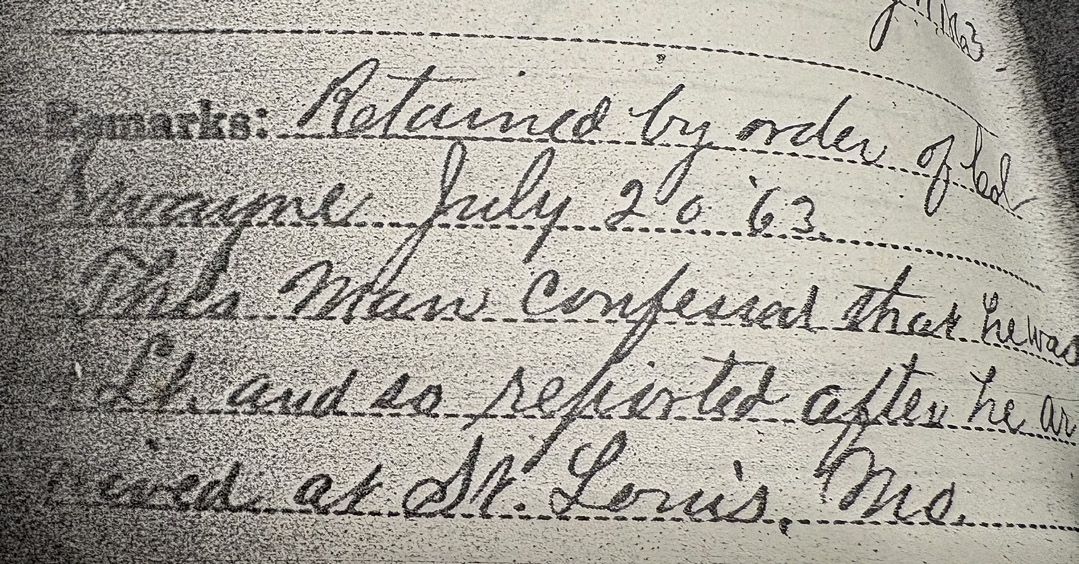 Remarks: Retained by order of Col
Swayne July 20 '63.
This Man Confessed that he was
Lt. and so reported after he ar
rived at St. Louis, Mo.